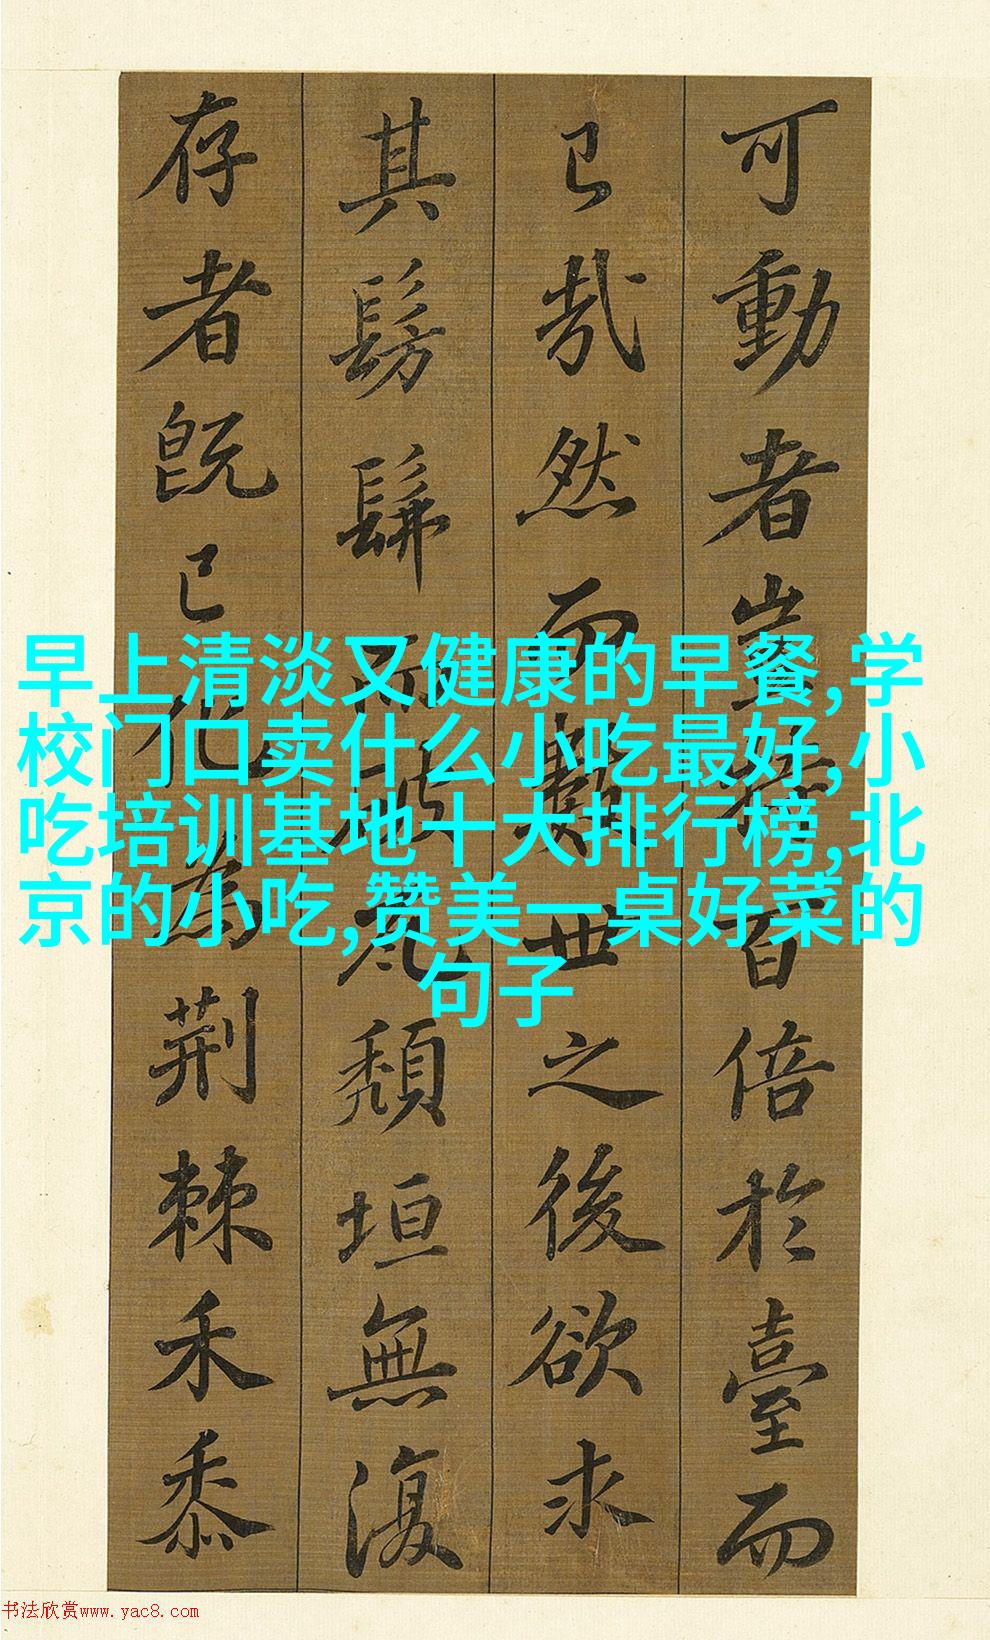 可動者豈特百倍於臺而
已哉然而數世之後欲求
其髣髴而破瓦頹垣無復
存者既已化為荊棘禾黍
早上清淡又健康的早餐,学
校门口卖什么小吃最好,小
吃培训基地十大排行榜,北
京的小吃,赞美一桌好菜的
句子
书法欣赏www.yac8.com